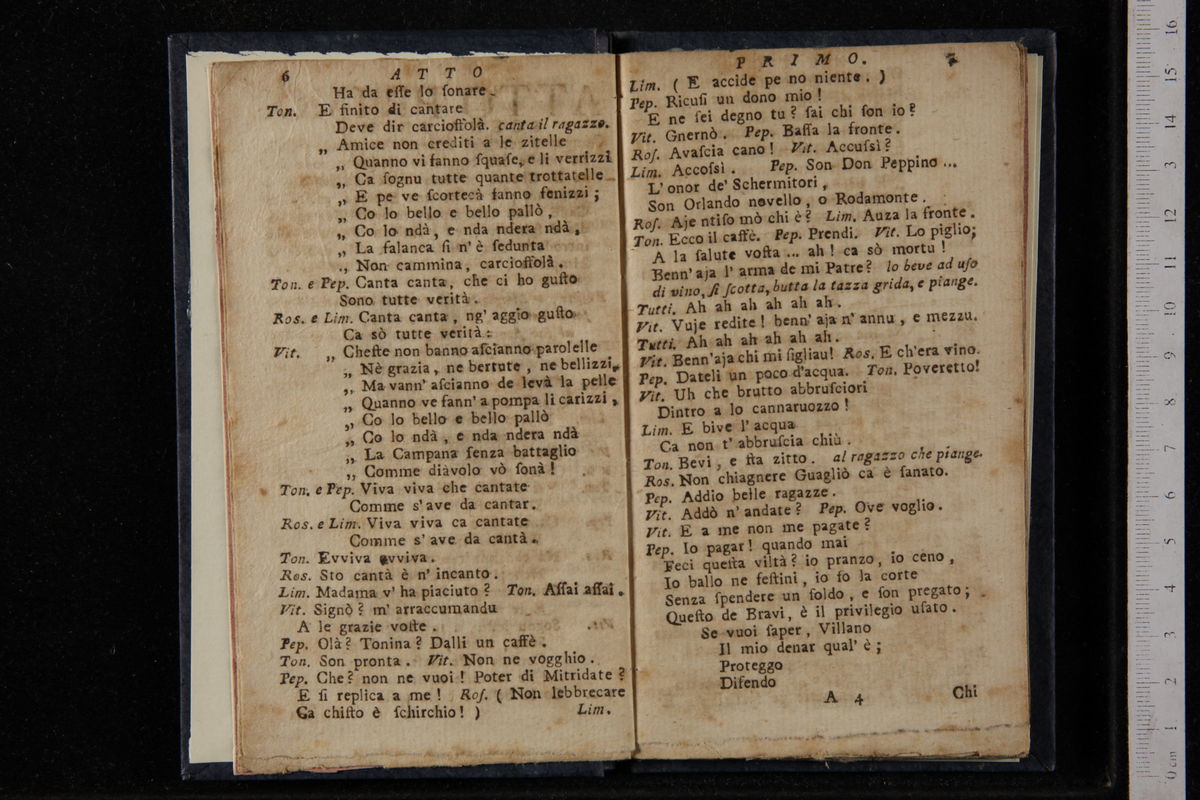 6 ATTO
Ha da eſſe lo ſonare.
Ton. E finito di cantare
Deve dir carcioffolà. canta il ragazzo.
„ Amice non crediti a le zitelle
„ Quanno vi fanno ſquaſe, e li verrizzi
„ Ca ſognu tutte quante trottatelle
„ E pe ve ſcortecà fanno fenizzi ;
„ Co lo bello e bello pallò ,
„ Co lo ndà , e nda ndera ndà ,
„ La falanca ſi n' è ſedunta
„ Non cammina, carcioffolà .
Ton. e Pep. Canta canta, che ci ho guſto
Sono tutte verità .
Ros. e Lim. Canta canta , ng' aggio guſto
Ca sò tutte verità :
Vit. „ Cheſte non banno aſcianno parolelle
„ Nè grazia , ne bertute , ne bellizzi,
„ Ma vann' aſcianno de levà la pelle
„ Quanno ve fann' a pompa li carizzi ,
„ Co lo bello e bello pallò
„ Co lo ndà , e nda ndera ndà
„ La Campana ſenza battaglio
„ Comme diàvolo vò ſonà !
Ton. e Pep. Viva viva che cantate
Comme s' ave da cantar.
Ros. e Lim. Viva viva ca cantate
Comme s' ave da cantà .
Ton. Evviva evviva .
Ros. Sto cantà è n' incanto .
Lim. Madama v' ha piaciuto ? Ton. Aſſai aſſai .
Vit. Signò ? m' arraccumandu
A le grazie voſte .
Pep. Olà ? Tonina ? Dalli un caffè .
Ton. Son pronta . Vit. Non ne vogghio .
Pep. Che ? non ne vuoi ! Poter di Mitridate ?
E ſi replica a me ! Roſ. ( Non lebbrecare
Ca chiſto è ſchirchio ! ) Lim.
PRIMO. 7
Lim. ( E accide pe no niente . )
Pep. Ricuſi un dono mio !
E ne ſei degno tu ? ſai chi ſon io ?
Vit. Gnernò . Pep. Baſſa la fronte .
Roſ. Avaſcia cano ! Vit. Accuſsì ?
Lim. Accoſsì . Pep. Son Don Peppino ...
L' onor de' Schermitori ,
Son Orlando novello , o Rodamonte .
Roſ. Aje ntiſo mò chi è ? Lim. Auza la fronte .
Ton. Ecco il caffè. Pep. Prendi. Vit. Lo piglio;
A la ſalute voſta ... ah ! ca sò mortu !
Benn' aja l' arma de mi Patre ? lo beve ad uſo
di vino, ſi ſcotta, butta la tazza grida, e piange.
Tutti. Ah ah ah ah ah ah .
Vit. Vuje redite ! benn' aja n' annu , e mezzu.
Tutti. Ah ah ah ah ah ah.
Vit. Benn'aja chi mi figliau! Ros. E ch'era vino.
Pep. Dateli un poco d'acqua. Ton. Poveretto!
Vit. Uh che brutto abbruſciori
Dintro a lo cannaruozzo !
Lim. E bive l' acqua
Ca non t' abbruſcia chiù .
Ton. Bevi , e ſta zitto . al ragazzo che piange.
Ros. Non chiagnere Guagliò ca è ſanato.
Pep. Addio belle ragazze .
Vit. Addò n' andate ? Pep. Ove voglio .
Vit. E a me non me pagate ?
Pep. Io pagar ! quando mai
Feci queſta viltà ? io pranzo , io ceno ,
Io ballo ne feſtini , io fo la corte
Senza ſpendere un ſoldo , e ſon pregato ;
Queſto de Bravi, è il privilegio uſato .
Se vuoi ſaper , Villano
Il mio denar qual' è ;
Proteggo
Difendo
A 4 Chi
0 cm 1 2 3 4 5 6 7 8 9 10 11 12 13 14 15 16